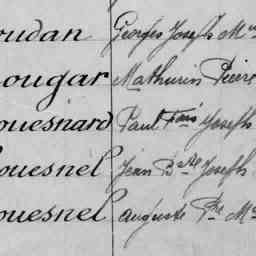 oudan Georges Joseph M
ougar Mathurin Pierr
ouesnard Paul Fois Joseph
ouesnel Jean Bte Joseph
ouesnel Auguste Phe M